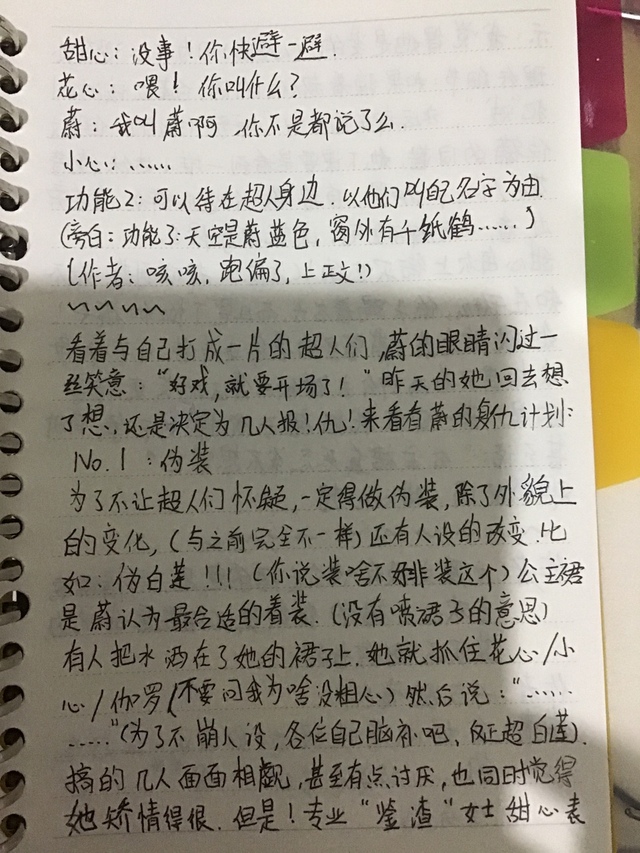 甜心：没事！你快避一避.
花心：喂！你叫什么？
蔚：我叫蔚啊 你不是都说了么.
小心：......
功能2：可以待在超人身边.以他们叫自己名字为由.
(旁白：功能3：天空是蔚蓝色，窗外有千纸鹤......)
(作者：咳咳，跑偏了，上正文!)
~~~~
看着与自己打成一片的超人们,蔚的眼睛闪过一
丝笑意：“好戏，就要开场了！”昨天的她回去想
了想.还是决定为几人报！仇！来看看蔚的复仇计划:
No.1：伪装
为了不让超人们怀疑，一定得做伪装，除了外貌上
的变化，(与之前完全不一样)还有人设的改变.比
如：伪白莲！！！(你说装啥不好非装这个)公主裙
是蔚认为最合适的着装.(没有喷裙子的意思)
有人把水洒在了她的裙子上.她就抓住花心/小
心/伽罗(不要问我为啥没粗心)然后说：“......
......”(为了不崩人设，各位自己脑补吧、反正超白莲).
搞的几人面面相觑，甚至有点讨厌，也同时觉得
她矫情得很.但是！专业“鉴渣”女士甜心表